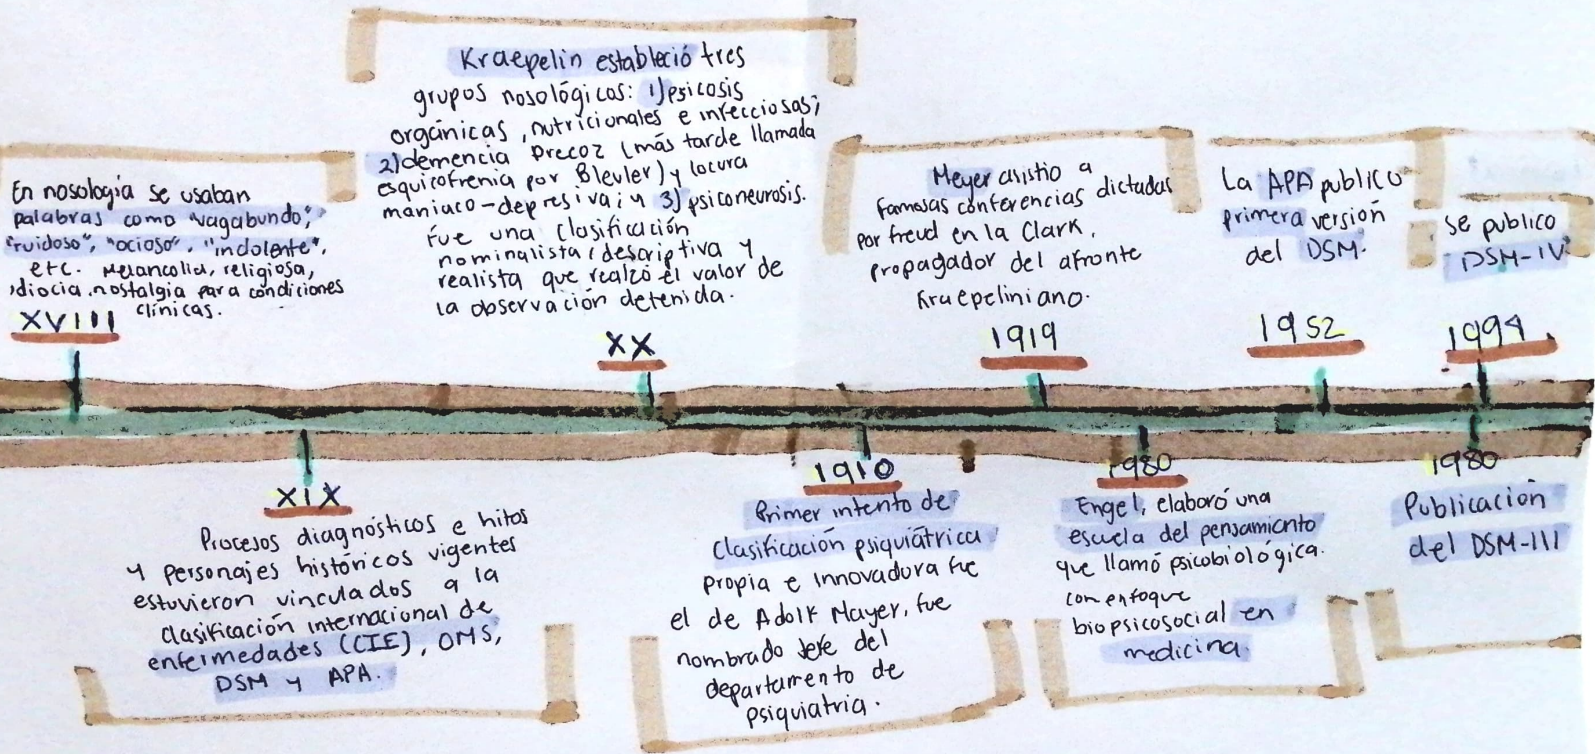 En nosología se usaban
palabras como "vagabundo;"
"ruidoso", "ocioso", "indolente",
etc. Melancolia, religiosa,
idiocia, nostalgia para condiciones
clínicas.
XVIII
Kraepelin estableció tres
grupos nosológicos: 1)psicosis
orgánicas, nutricionales e infecciosas;
2)demencia precoz (más tarde llamada
esquizofrenia por Bleuler) y locura
maniaco-depresiva; y 3) psiconeurosis.
Fue una clasificación
nominalista, descriptiva y
realista que realzó el valor de
la observación detenida.
XX
Meyer asistio a
famosas conferencias dictadas
por freud en la Clark,
propagador del afronte
Kraepeliniano.
1919
La APA publico
primera versión
del DSM.
1952
se publico
DSM-IV
1994
XIX
Procesos diagnósticos e hitos
y personajes históricos vigentes
estuvieron vinculados a la
clasificación internacional de
enfermedades (CIE), OMS,
DSM y APA.
1910
Primer intento de
clasificación psiquiátrica
propia e innovadora fue
el de Adolf Mayer, fue
nombrado Jefe del
departamento de
psiquiatria.
1980
Engel, elaboró una
escuela del pensamiento
que llamó psicobiológica.
con enfoque
biopsicosocial en
medicina.
1980
Publicación
del DSM-III